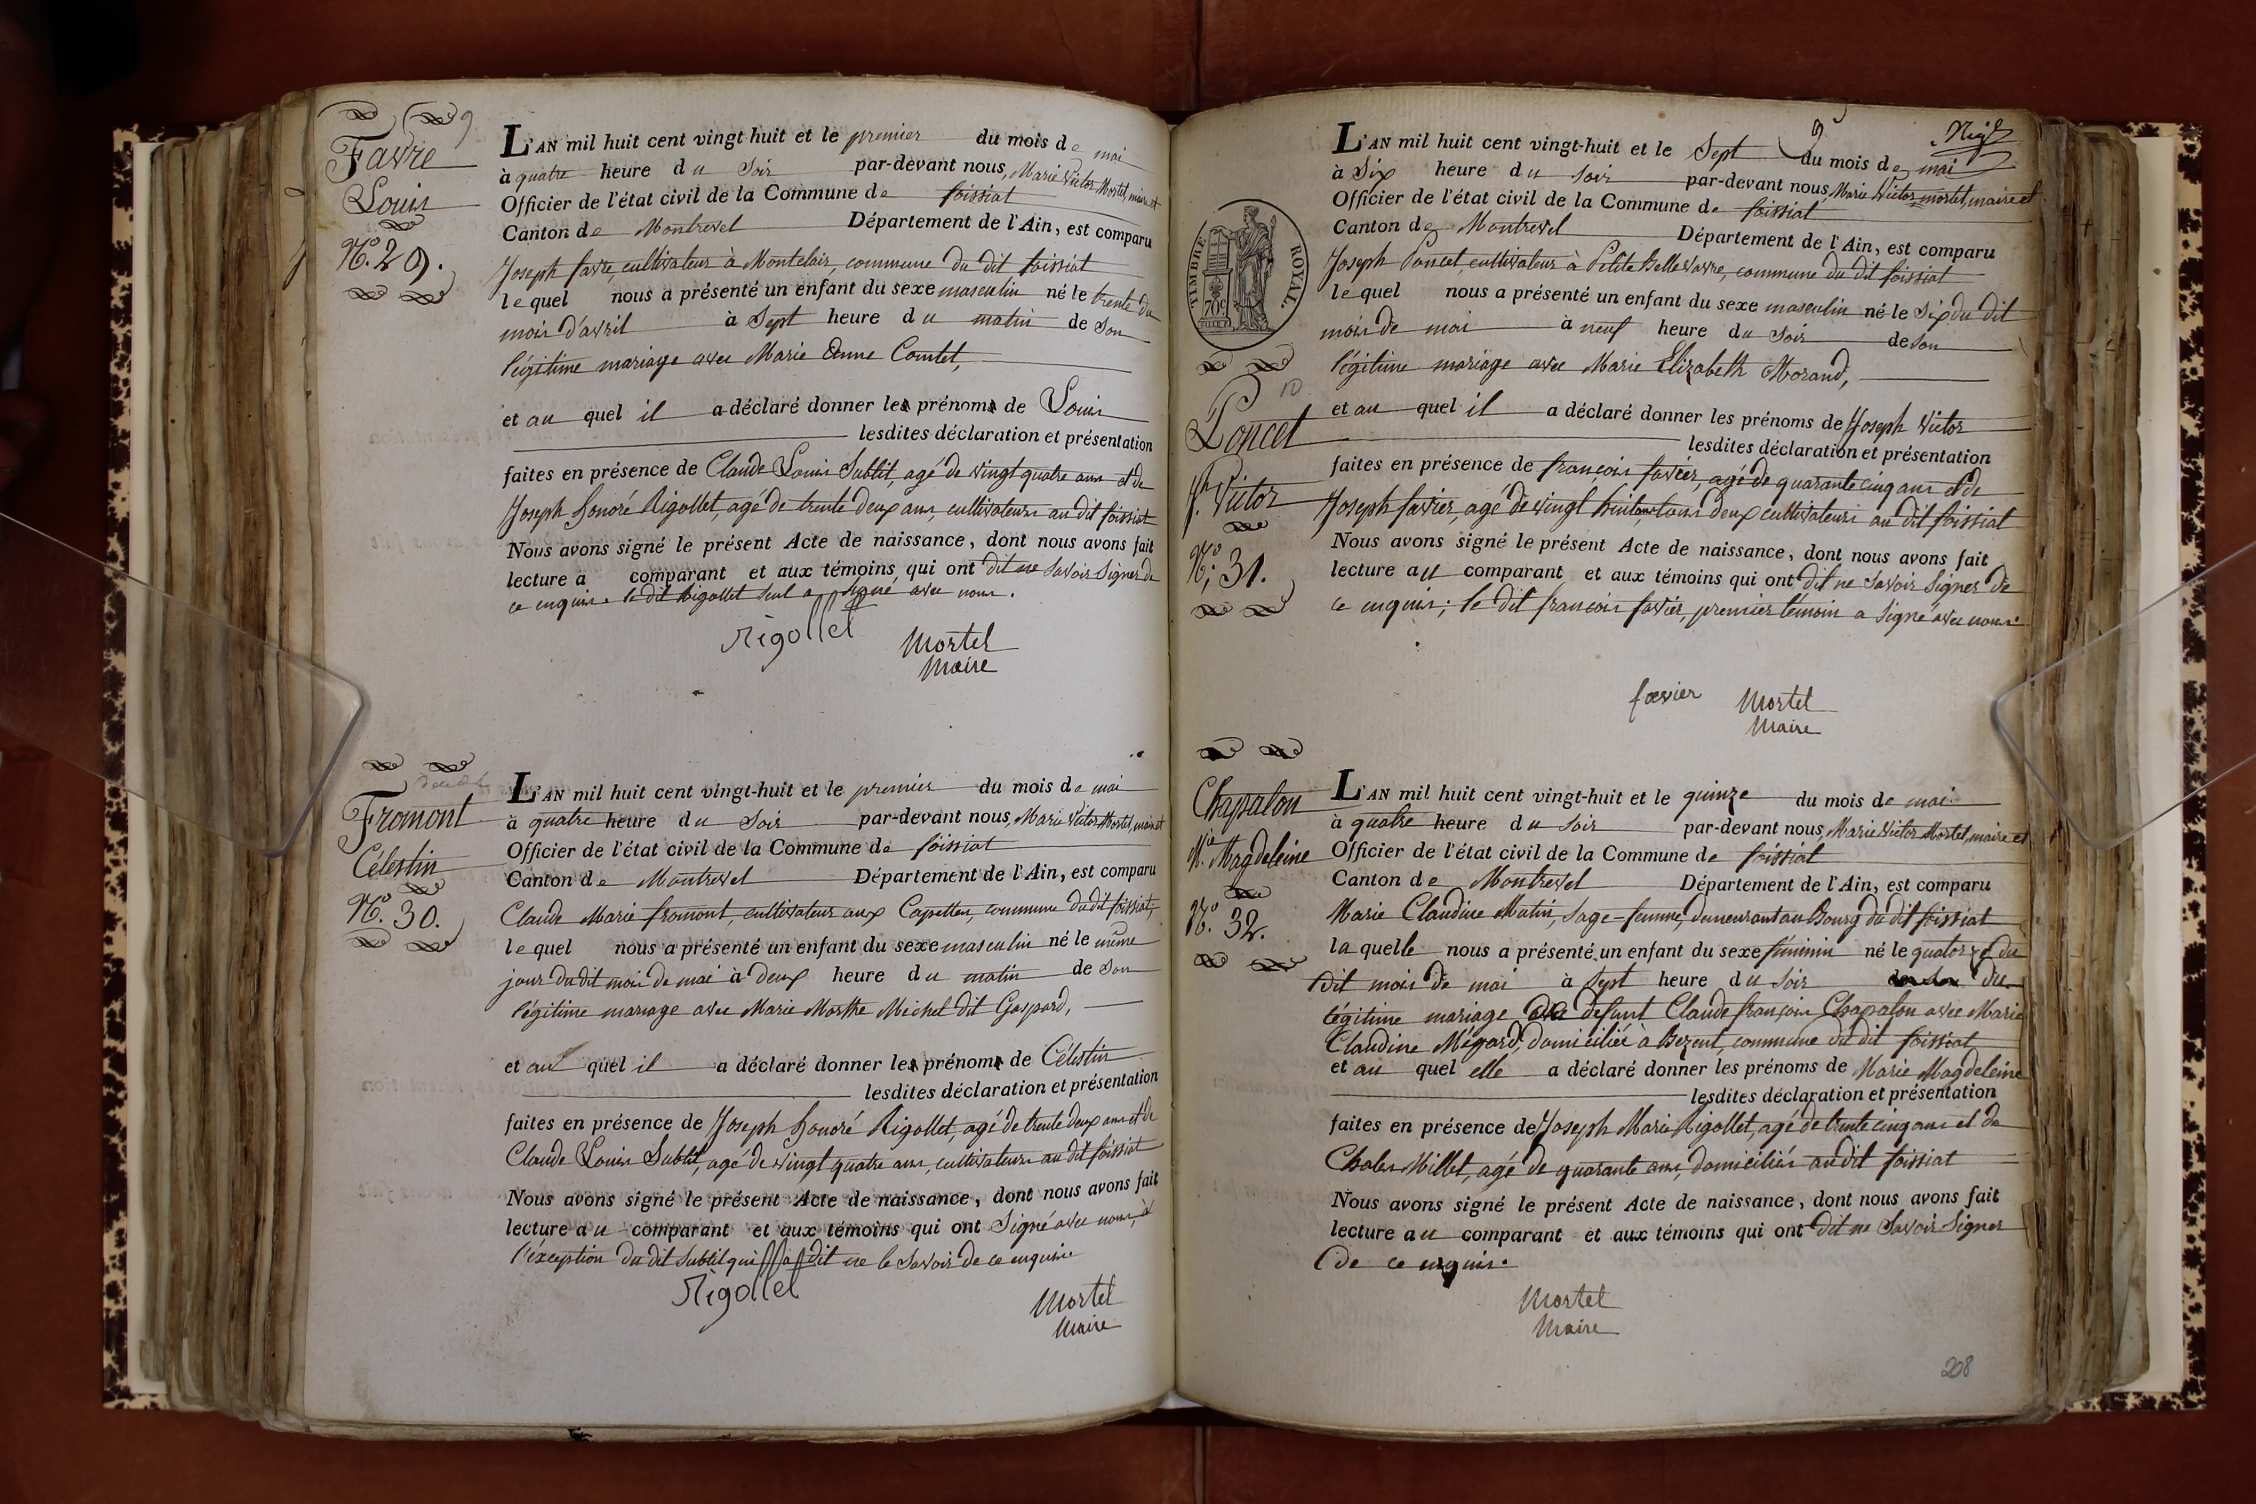 9
Favre
Louis
N.o 29.
L'AN mil huit cent vingt huit et le premier du mois de mai
à quatre heure du soir par-devant nous, Marie Victor Mortel, maire et
Officier de l'état civil de la Commune de foissiat
Canton de Montrevel Département de l'Ain, est comparu
Joseph favre, cultivateur à Montclair, commune du dit foissiat
lequel nous a présenté un enfant du sexe masculin né le trente du
mois d'avril à sept heure du matin de son
légitime mariage avec Marie Anne Comtet,
et au quel il a déclaré donner les prénoms de Louis
lesdites déclaration et présentation
faites en présence de Claude Louis Subtil, agé de vingt quatre ans et de
Joseph honoré Rigollet, agé de trente deux ans, cultivateurs au dit foissiat
Nous avons signé le présent Acte de naissance, dont nous avons fait
lecture a comparant et aux témoins qui ont dit ne savoir signer de
ce enquis. le dit Rigollet seul a signé avec nous.
Rigollet Mortel
Maire
Fromont
Célestin
N.o 30.
L'AN mil huit cent vingt-huit et le premier du mois de mai
à quatre heure du soir par-devant nous, Marie Victor Mortel, maire et
Officier de l'état civil de la Commune de foissiat
Canton de Montrevel Département de l'Ain, est comparu
Claude Marie fromont, cultivateur aux Capettes, commune du dit foissiat,
lequel nous a présenté un enfant du sexe masculin né le même
jour du dit mois de mai à deux heure du matin de son
légitime mariage avec Marie Marthe Michel dit Gaspard,
et au quel il a déclaré donner les prénoms de Célestin
lesdites déclaration et présentation
faites en présence de Joseph honoré Rigollet, agé de trente deux ans et de
Claude Louis Subtil, agé de vingt quatre ans, cultivateurs au dit foissiat
Nous avons signé le présent Acte de naissance, dont nous avons fait
lecture au comparant et aux témoins qui ont signé avec nous, à
l'éxception du dit Subtil qui a dit ne le savoir de ce enquis
Rigollet Mortel
Maire
9
TIMBRE ROYAL.
70c
10
Poncet
J.h Victor
N.o 31.
L'AN mil huit cent vingt-huit et le sept du mois de mai
à six heure du soir par-devant nous, Marie Victor mortel, maire et
Officier de l'état civil de la Commune de foissiat
Canton de Montrevel Département de l'Ain, est comparu
Joseph Poncet, cultivateur à Petite Bellevavre, commune du dit foissiat
lequel nous a présenté un enfant du sexe masculin né le six du dit
mois de mai à neuf heure du soir de son
légitime mariage avec Marie Elizabeth Morand,
et au quel il a déclaré donner les prénoms de Joseph Victor
lesdites déclaration et présentation
faites en présence de françois favier, agé de quarante cinq ans et de
Joseph favier, agé de vingt huit ans, tous deux cultivateurs au dit foissiat
Nous avons signé le présent Acte de naissance, dont nous avons fait
lecture au comparant et aux témoins qui ont dit ne savoir signer de
ce enquis; le dit françois favier, premier témoin a signé avec nous.
favier Mortel
Maire
Chapalon
M.ie Magdeleine
N.o 32.
L'AN mil huit cent vingt-huit et le quinze du mois de mai
à quatre heure du soir par-devant nous, Marie Victor Mortel, maire et
Officier de l'état civil de la Commune de foissiat
Canton de Montrevel Département de l'Ain, est comparu
Marie Claudine Mutin, sage-femme, demeurant au Bourg du dit foissiat
laquelle nous a présenté un enfant du sexe féminin né le quatorze du
dit mois de mai à sept heure du soir du
légitime mariage de defunt Claude françois Chapalon avec Marie
Claudine Mégard, domiciliée à Bezent, commune du dit foissiat
et au quel elle a déclaré donner les prénoms de Marie Magdeleine
lesdites déclaration et présentation
faites en présence de Joseph Marie Rigollet, agé de trente cinq ans et de
Chales Millet, agé de quarante ans, domiciliés au dit foissiat
Nous avons signé le présent Acte de naissance, dont nous avons fait
lecture au comparant et aux témoins qui ont dit ne savoir signer
de ce enquis.
Mortel
Maire
208